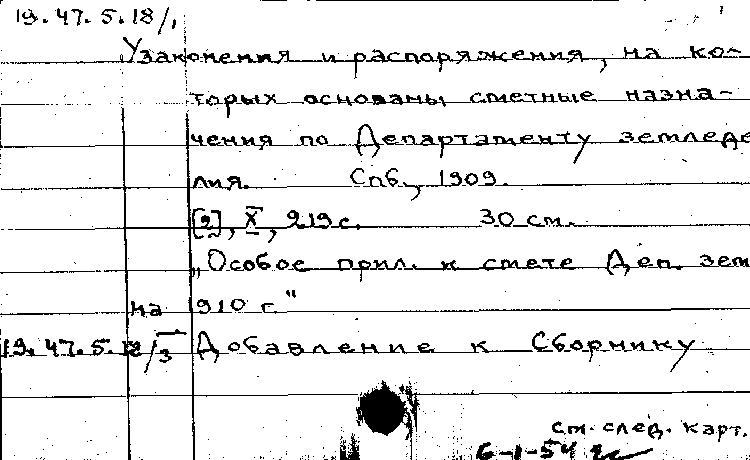 19.47.5.18/1
Узаконения и распоряжения, на ко-
торых основаны сметные назна-
чения по Департаменту земледе
лия. Спб., 1909.
[2], X, 219 с. 30 см.
„Особое прил. к смете Деп. зем
на 1910 г."
19.47.5.18/3 Добавление к Сборнику
см. след. карт.
6-1-54